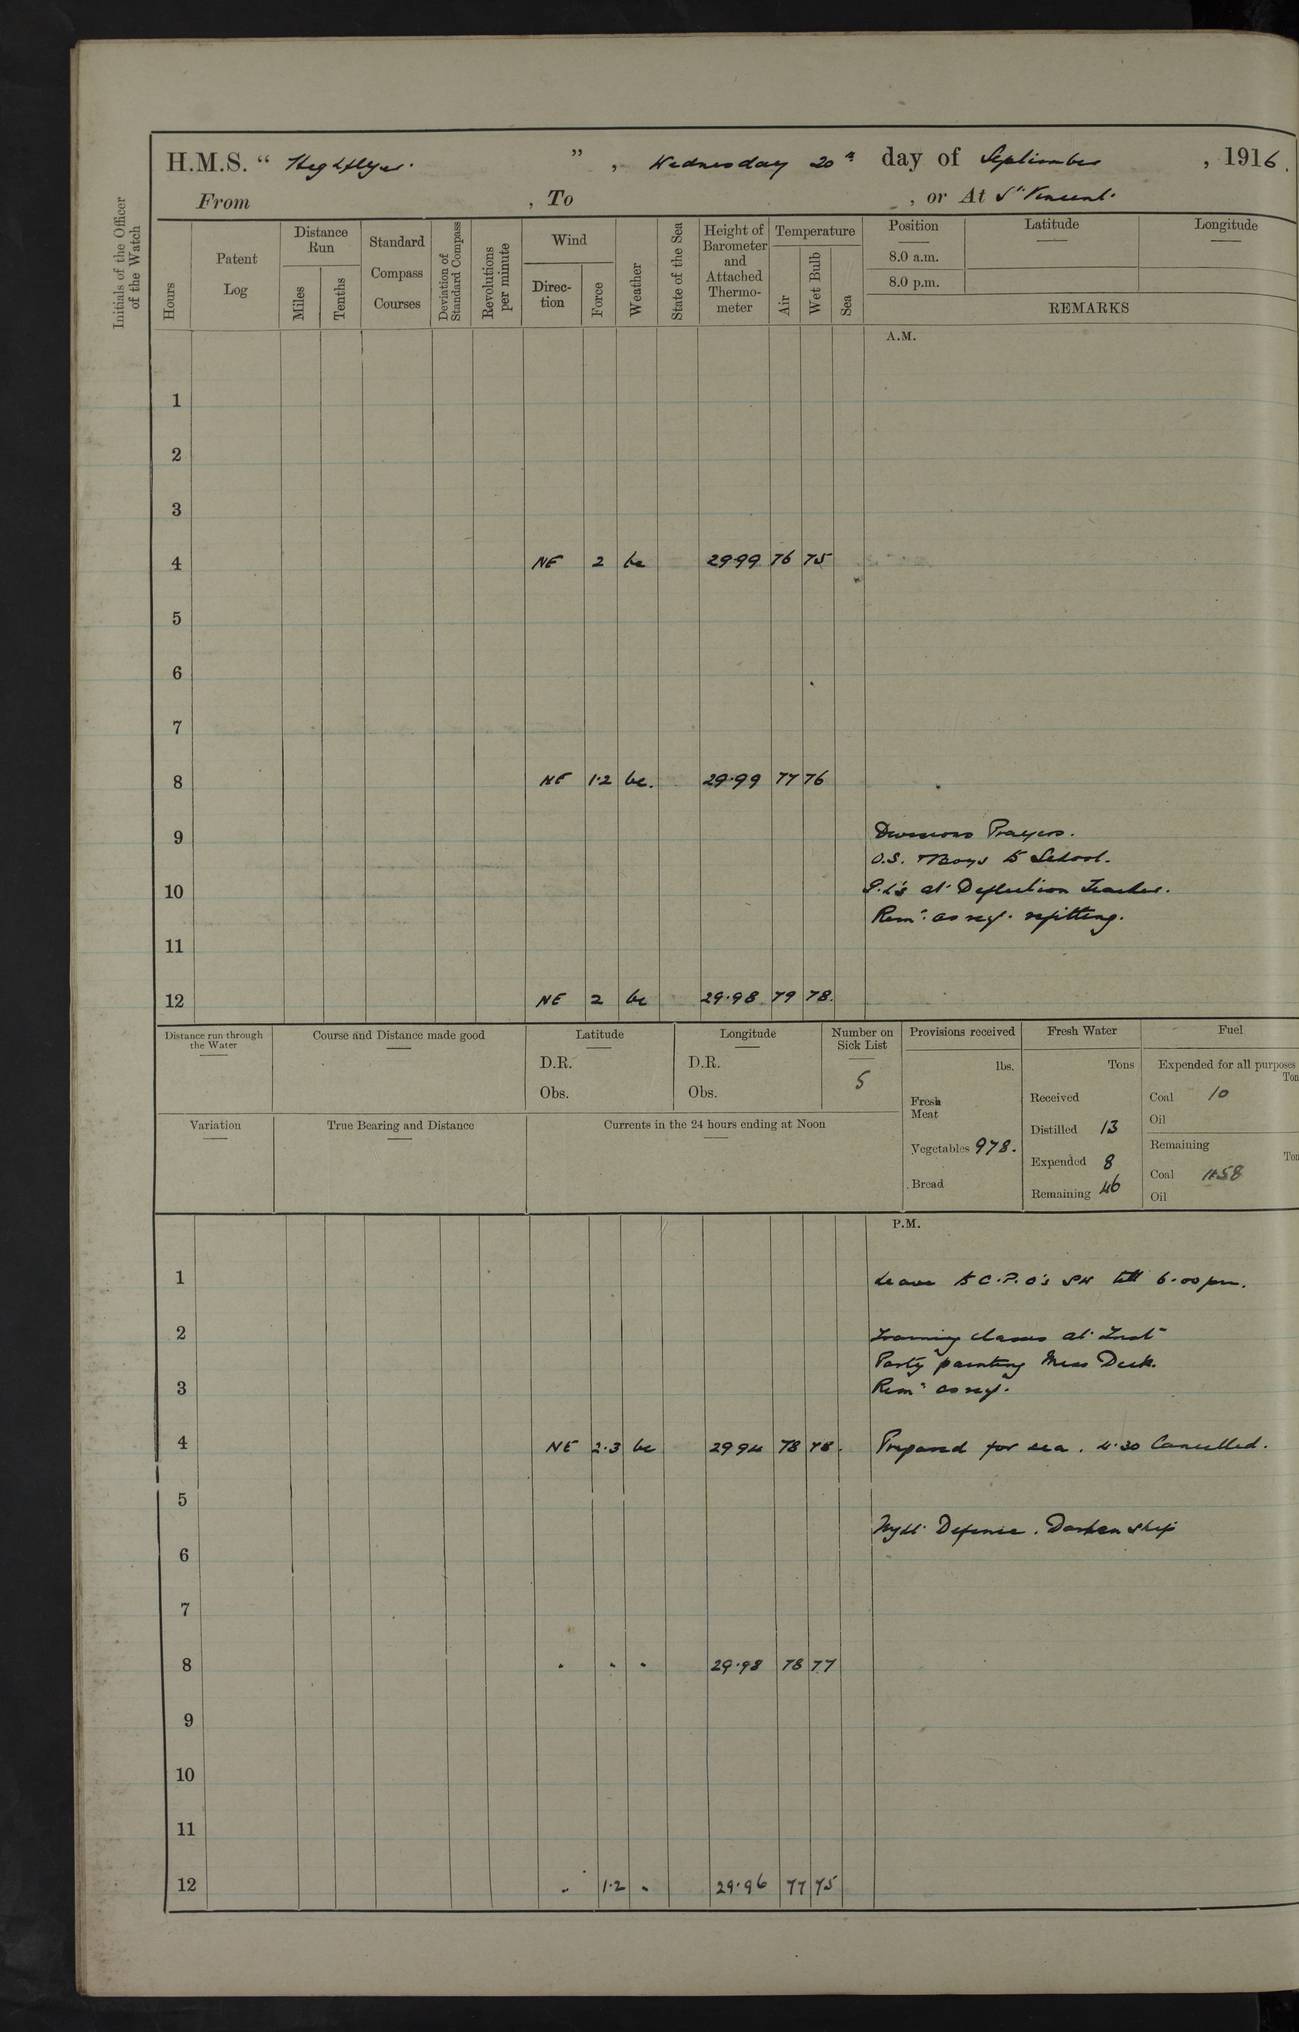 H.M.S. “ Highflyer. ” , Wednesday 20th day of September , 1916.
From , To , or At St Vincent.
Initials of the Officer of the Watch
Hours
Patent Log
Distance Run
Miles
Tenths
Standard Compass Courses
Deviation of Standard Compass
Revolutions per minute
Wind
Direction
Force
Weather
State of the Sea
Height of Barometer and Attached Thermometer
Temperature
Air
Wet Bulb
Sea
Position
8.0 a.m.
8.0 p.m.
Latitude
Longitude
REMARKS
A.M.
1
2
3
4 NE 2 bc 29.99 76 75
5
6
7
8 NE 1.2 bc. 29.99 77 76
9 Divisions Prayers.
O.S. & Boys to School.
10 G.L's at Deflection Teacher.
Remr. as req. refitting.
11
12 NE 2 bc 29.98 79 78.
Distance run through the Water
Course and Distance made good
Latitude
D.R.
Obs.
Longitude
D.R.
Obs.
Number on Sick List
5
Provisions received
lbs.
Fresh Meat
Vegetables 978.
Bread
Fresh Water
Tons
Received
Distilled 13
Expended 8
Remaining 46
Fuel
Expended for all purposes
Coal 10
Oil
Remaining
Coal 1158
Oil
Variation
True Bearing and Distance
Currents in the 24 hours ending at Noon
P.M.
1 Leave to C.P.O's till 6.00 pm.
2 Training classes at Inst
Party painting Mess Deck.
3 Remr as req.
4 NE 2.3 bc 29 94 78 78. Prepared for sea. 4.30 Cancelled.
5
Night Defence. Darken ship
6
7
8 " " " 29.98 78 77
9
10
11
12 " 1.2 " 29.96 77 75